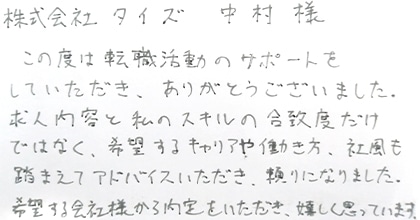 株式会社 タイズ 中村 様
この度は転職活動のサポートを
していただき、ありがとうございました。
求人内容と私のスキルの合致度だけ
ではなく、希望するキャリアや働き方、社風も
踏まえてアドバイスいただき、頼りになりました。
希望する会社様から内定をいただき、嬉しく思っています。